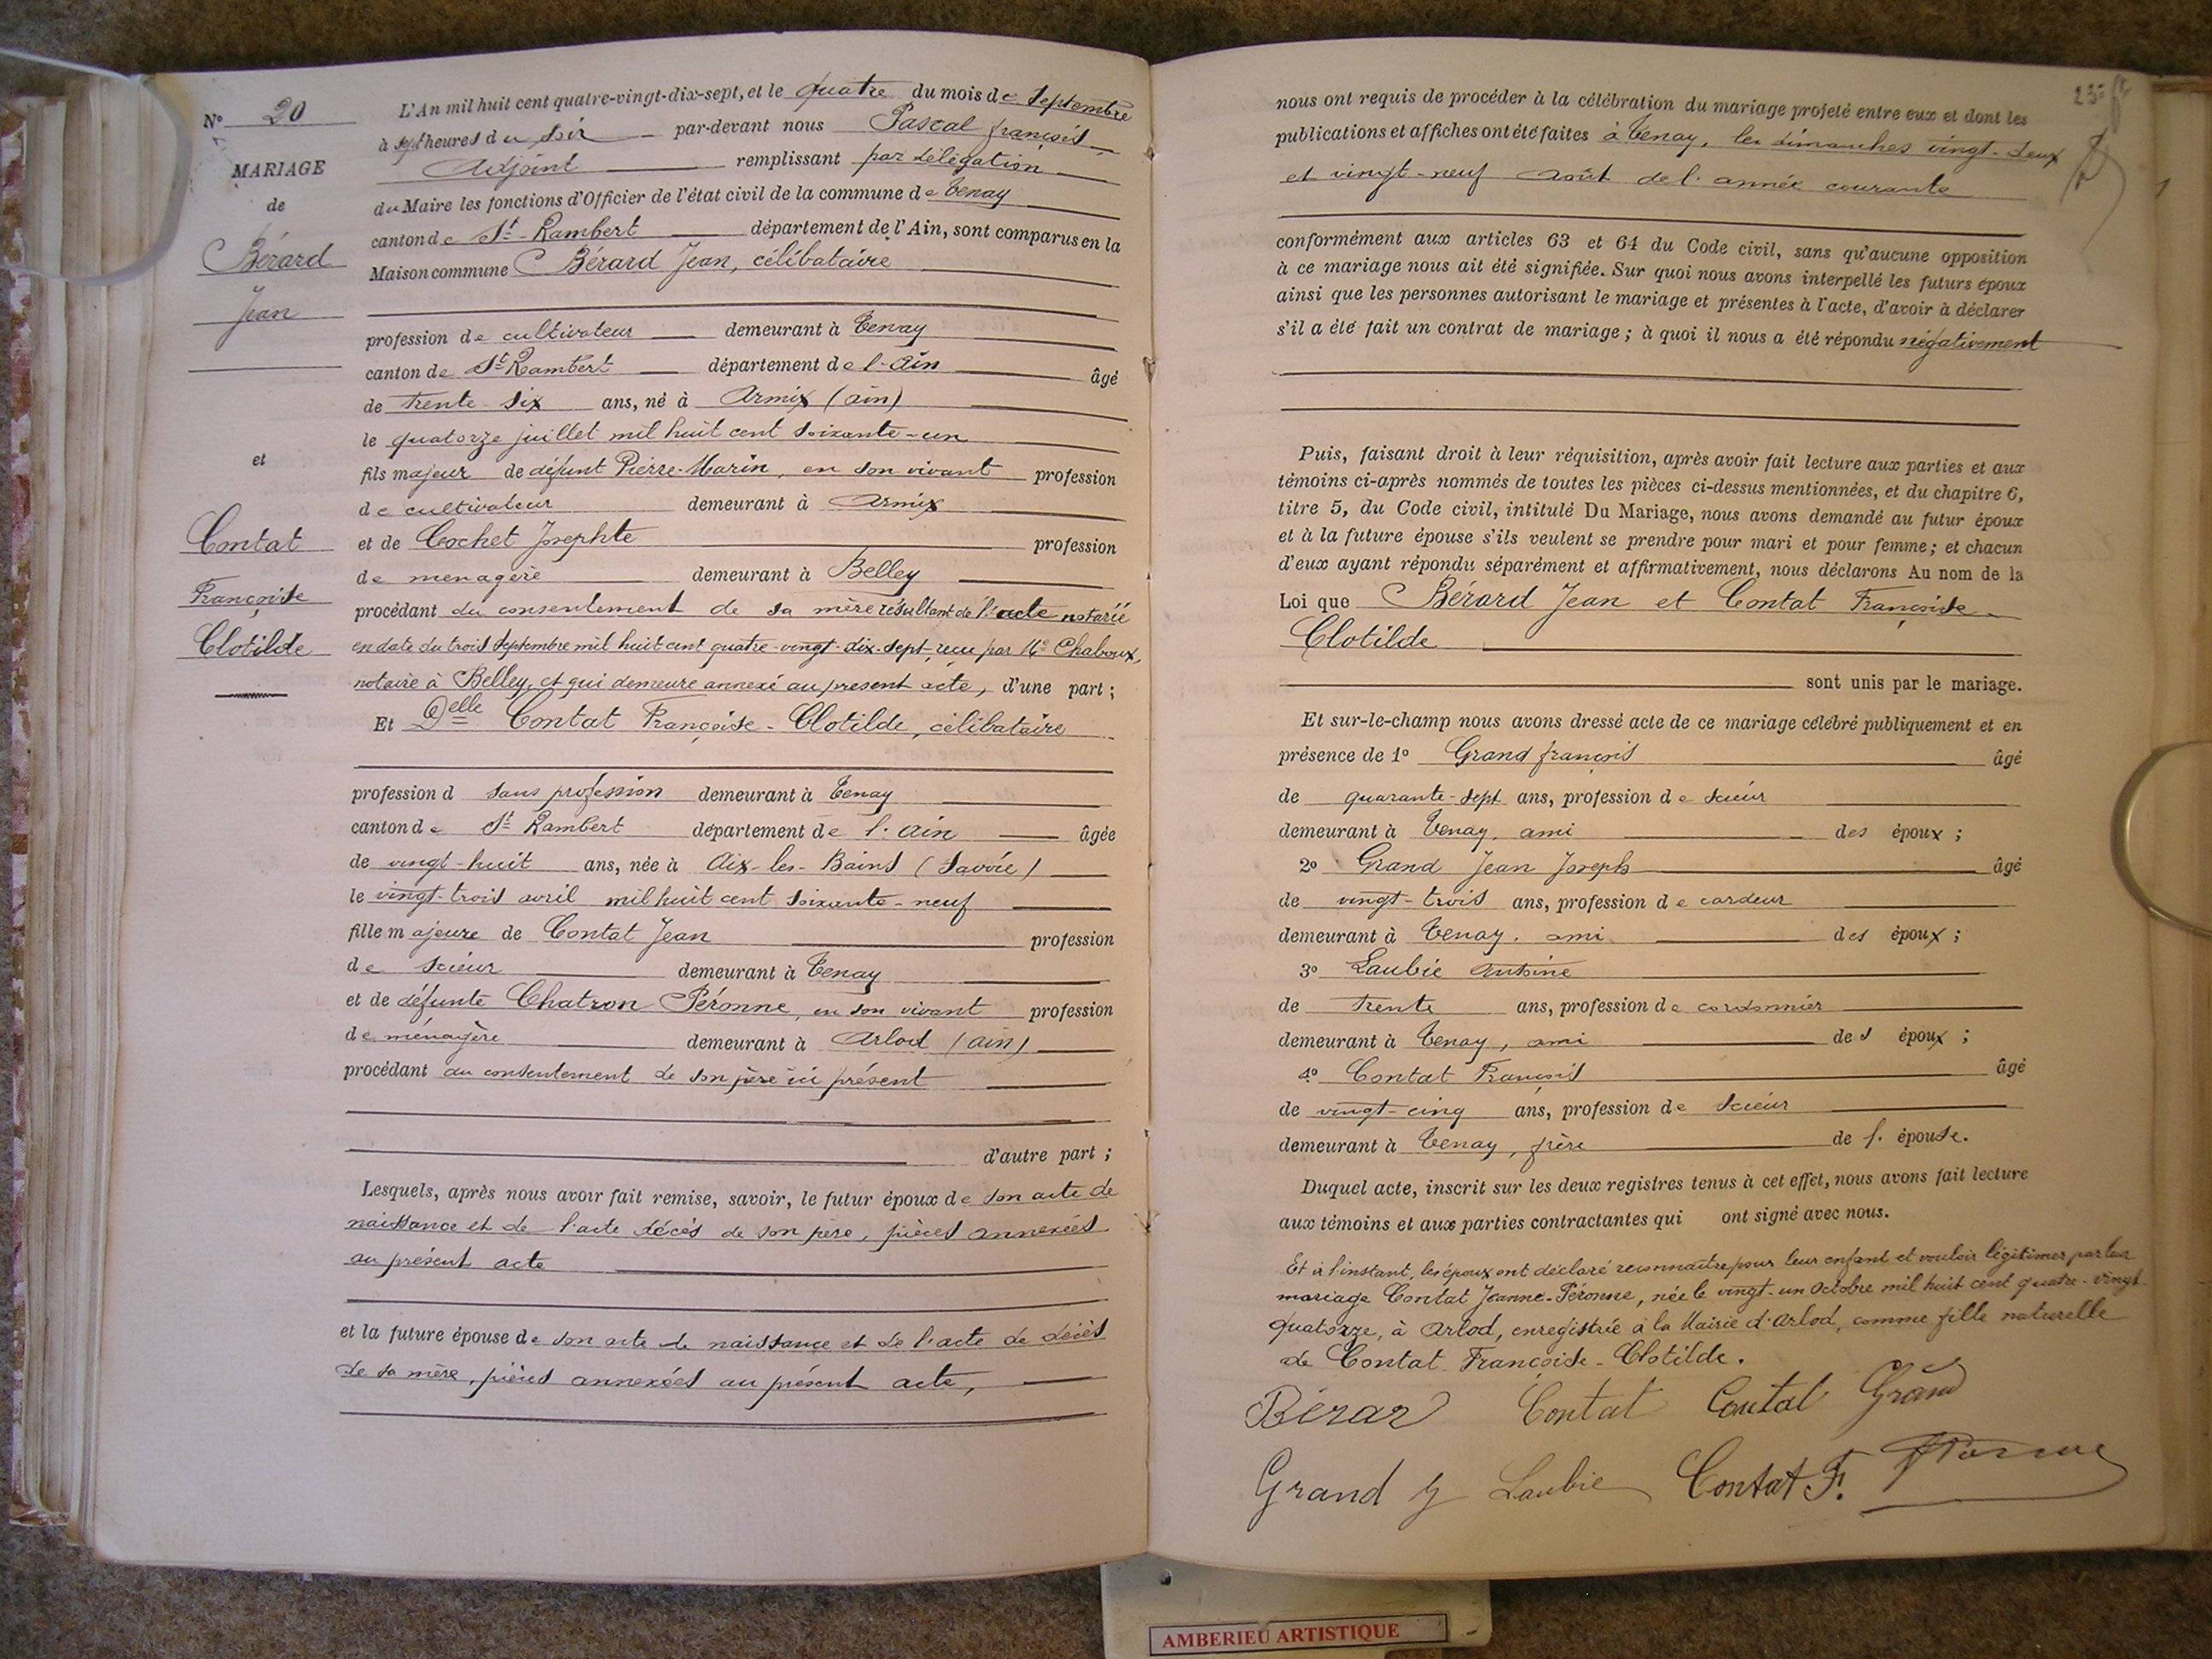 N° 20
MARIAGE
de
Bérard
Jean
et
Contat
Françoise
Clotilde
L'An mil huit cent quatre-vingt-dix-sept, et le quatre du mois de Septembre
à sept heures du soir par-devant nous Pascal françois
Adjoint remplissant par délégation
du Maire les fonctions d'Officier de l'état civil de la commune de Tenay
canton de St-Rambert département de l'Ain, sont comparus en la
Maison commune Bérard Jean, célibataire
profession de cultivateur demeurant à Tenay
canton de St Rambert département de l'Ain âgé
de trente six ans, né à Armix (ain)
le quatorze juillet mil huit cent soixante-un
fils majeur de défunt Pierre-Marin, en son vivant profession
de cultivateur demeurant à Armix
et de Cochet Josephte profession
de ménagère demeurant à Belley
procédant du consentement de sa mère résultant de l'acte notarié
en date du trois Septembre mil huit cent quatre-vingt-dix-sept, reçu par Me Chaboux,
notaire à Belley, et qui demeure annexé au présent acte, d'une part ;
Et Delle Contat Françoise-Clotilde, célibataire
profession d sans profession demeurant à Tenay
canton de St Rambert département de l'Ain âgée
de vingt-huit ans, née à Aix-les-Bains (Savoie)
le vingt-trois avril mil huit cent soixante-neuf
fille majeure de Contat Jean profession
de scieur demeurant à Tenay
et de défunte Chatron Péronne, en son vivant profession
de ménagère demeurant à Arlod (ain)
procédant du consentement de son père ici présent
d'autre part ;
Lesquels, après nous avoir fait remise, savoir, le futur époux de son acte de
naissance et de l'acte décès de son père, pièces annexées
au présent acte
et la future épouse de son acte de naissance et de l'acte de décès
de sa mère, pièces annexées au présent acte,
nous ont requis de procéder à la célébration du mariage projeté entre eux et dont les
publications et affiches ont été faites à Tenay, les dimanches vingt-deux
et vingt-neuf août de l'année courante
conformément aux articles 63 et 64 du Code civil, sans qu'aucune opposition
à ce mariage nous ait été signifiée. Sur quoi nous avons interpellé les futurs époux
ainsi que les personnes autorisant le mariage et présentes à l'acte, d'avoir à déclarer
s'il a été fait un contrat de mariage ; à quoi il nous a été répondu négativement
Puis, faisant droit à leur réquisition, après avoir fait lecture aux parties et aux
témoins ci-après nommés de toutes les pièces ci-dessus mentionnées, et du chapitre 6,
titre 5, du Code civil, intitulé Du Mariage, nous avons demandé au futur époux
et à la future épouse s'ils veulent se prendre pour mari et pour femme ; et chacun
d'eux ayant répondu séparément et affirmativement, nous déclarons Au nom de la
Loi que Bérard Jean et Contat Françoise-
Clotilde
sont unis par le mariage.
Et sur-le-champ nous avons dressé acte de ce mariage célébré publiquement et en
présence de 1° Grand françois âgé
de quarante-sept ans, profession de scieur
demeurant à Tenay, ami des époux ;
2° Grand Jean Joseph âgé
de vingt-trois ans, profession de cardeur
demeurant à Tenay, ami des époux ;
3° Laubie Antoine
de trente ans, profession de cordonnier
demeurant à Tenay, ami des époux ;
4° Contat François âgé
de vingt-cinq ans, profession de scieur
demeurant à Tenay, frère de l'épouse.
Duquel acte, inscrit sur les deux registres tenus à cet effet, nous avons fait lecture
aux témoins et aux parties contractantes qui ont signé avec nous.
Et à l'instant, les époux ont déclaré reconnaître pour leur enfant et vouloir légitimer par leur
mariage Contat Jeanne-Péronne, née le vingt-un Octobre mil huit cent quatre-vingt-
quatorze, à Arlod, enregistrée à la Mairie d'Arlod, comme fille naturelle
de Contat Françoise-Clotilde.
Bérard Contat Contat Grand
Grand J Laubie Contat F.
AMBERIEU ARTISTIQUE